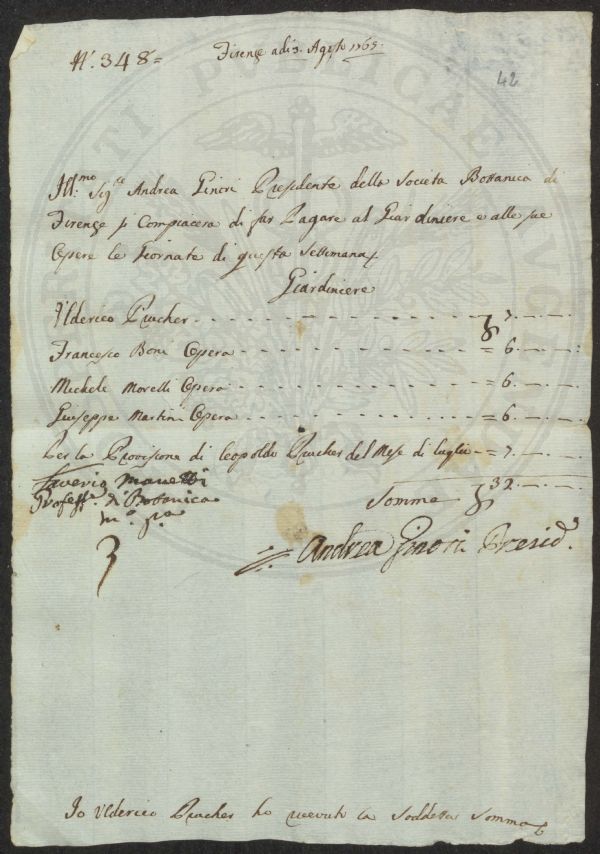 N.° 348=
Firenze adi 3. Agosto 1765.
42
Ill.mo Sig.re Andrea Ginori Presidente della Società Bottanica di
Firenze si Compiacerà di far Pagare al Giardiniere e alle sue
Opere le Giornate di questa Settimana
Giardiniere
Ulderico Prucher 7.
Francesco Boni Opera = 6.
Michele Morelli Opera = 6.
Giuseppe Martini Opera = 6.
Per la Provisione di Leopoldo Prucher del Mese di luglio = 7.
Saverio Manetti
Profess.e di Botanica
m.o p.a
Somma 32.
Andrea Ginori Presid.e
Io Ulderico Prucher ho ricevuto la Soddetta Somma